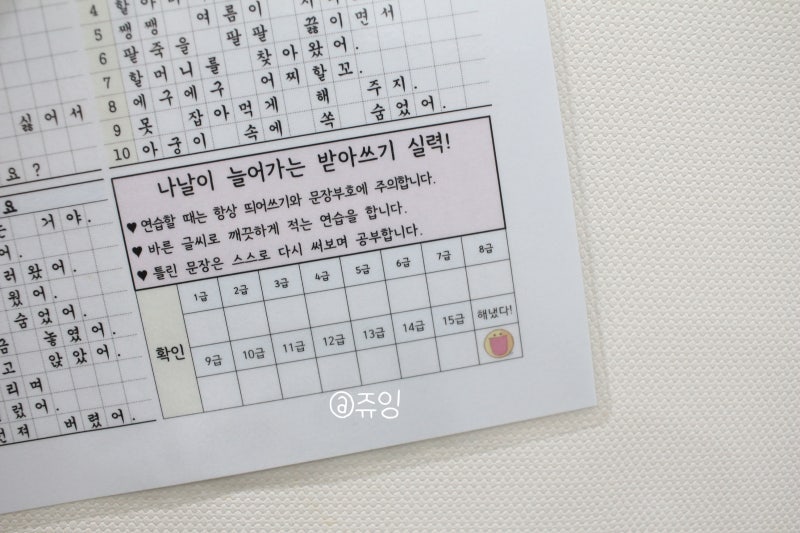 싫어서
요?
요
거야.
어.
러왔어.
웠어.
숨었어.
놓였어.
고 앉았어.
리며
렀어.
져 버렸어.
4
5 땡땡 여름이
6 팥죽을 팔팔 끓이면서
7 할머니를 찾아왔어.
8 에구에구 어찌할꼬.
9 못 잡아먹게 해 주지.
10 아궁이 속에 쏙 숨었어.
나날이 늘어가는 받아쓰기 실력!
♥ 연습할 때는 항상 띄어쓰기와 문장부호에 주의합니다.
♥ 바른 글씨로 깨끗하게 적는 연습을 합니다.
♥ 틀린 문장은 스스로 다시 써보며 공부합니다.
확인
1급 2급 3급 4급 5급 6급 7급 8급
9급 10급 11급 12급 13급 14급 15급 해냈다!
@쥬잉